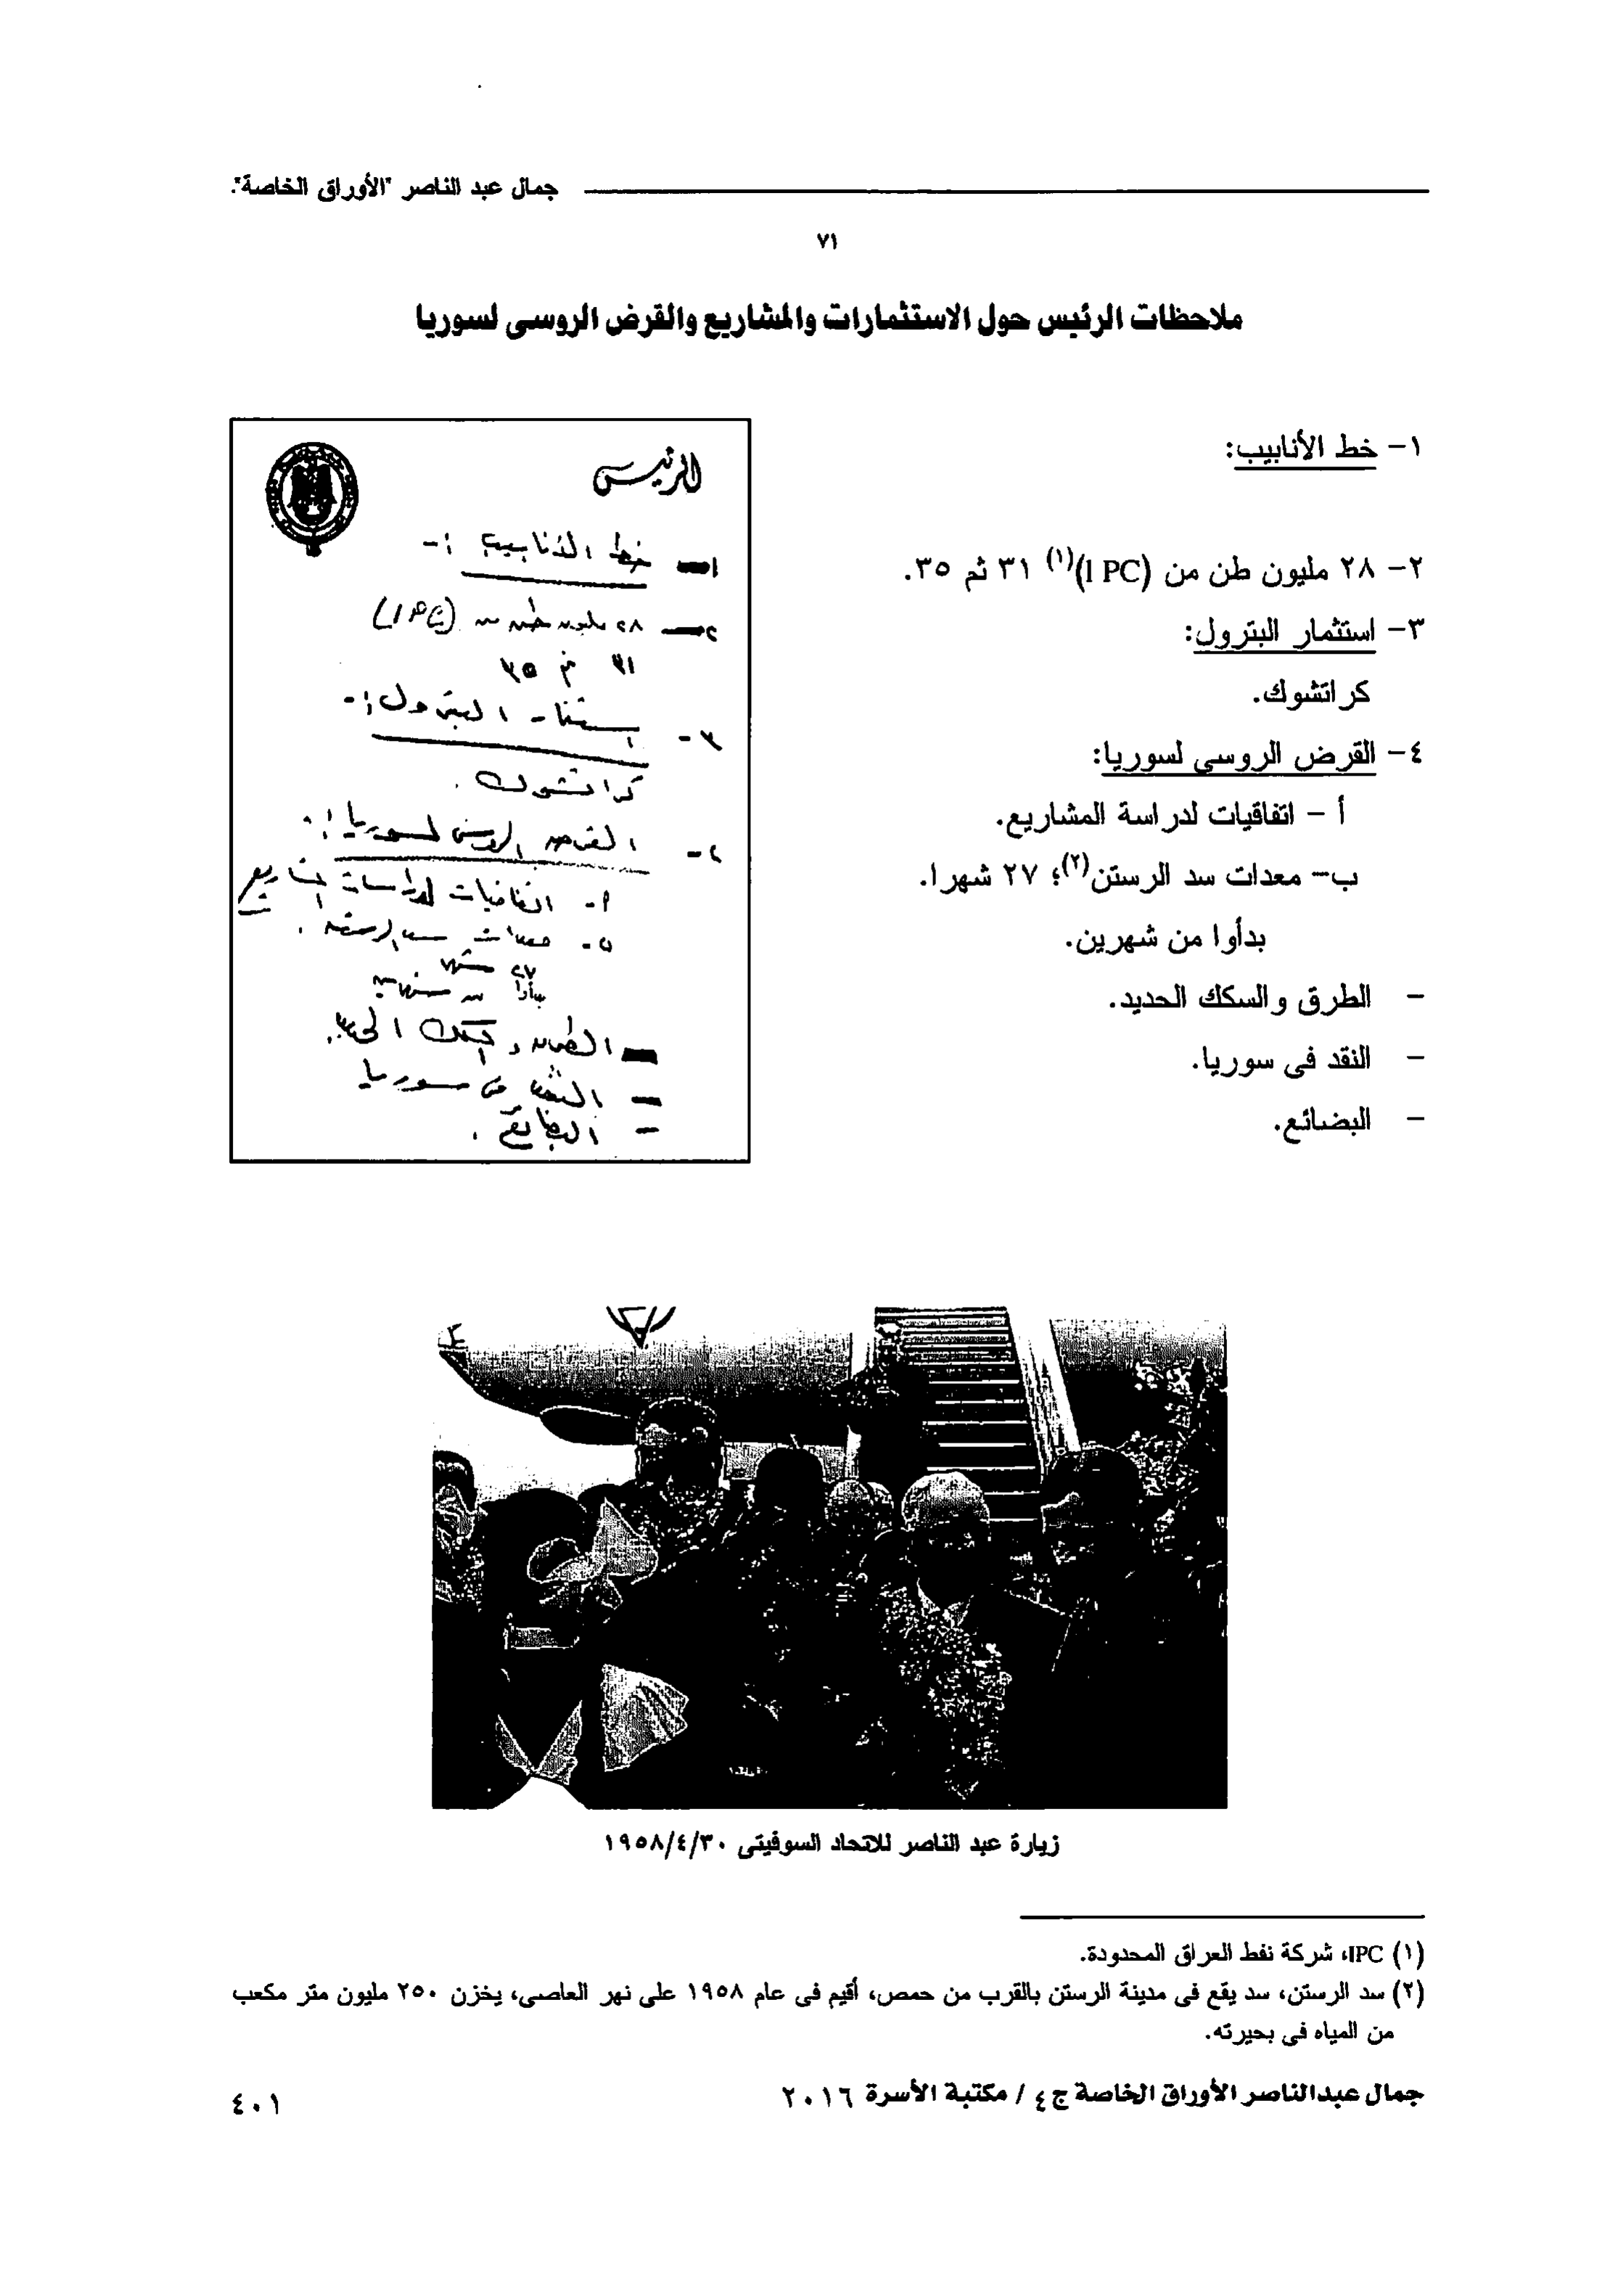 جمال عبد الناصر "الأوراق الخاصة".
٧١
ملاحظات الرئيس حول الاستثمارات والمشاريع والقرض الروسى لسوريا
١- خط الأنابيب:
٢- ٢٨ مليون طن من (I PC)(١) ٣١ ثم ٣٥.
٣- استثمار البترول:
كراتشوك.
٤- القرض الروسى لسوريا:
أ - اتفاقيات لدراسة المشاريع.
ب- معدات سد الرستن(٢)؛ ٢٧ شهرا.
بدأوا من شهرين.
- الطرق والسكك الحديد.
- النقد فى سوريا.
- البضائع.
الرئيس
١- خط الأنابيب :-
٢- ٢٨ مليون طن من (IPC)
٣١ ثم ٣٥
٣- استثمار البترول :-
كراتشوك .
٤- القرض الروسى لسوريا :-
أ- اتفاقيات لدراسة المشاريع
ب- معدات سد الرستن .
٢٧ شهرا
بدأوا من شهرين
- الطرق والسكك الحديد .
- النقد فى سوريا
- البضائع .
زيارة عبد الناصر للاتحاد السوفيتى ١٩٥٨/٤/٣٠
(١) IPC، شركة نفط العراق المحدودة.
(٢) سد الرستن، سد يقع فى مدينة الرستن بالقرب من حمص، أقيم فى عام ١٩٥٨ على نهر العاصى، يخزن ٢٥٠ مليون متر مكعب
من المياه فى بحيرته.
جمال عبدالناصر الأوراق الخاصة ج٤ / مكتبة الأسرة ٢٠١٦
٤٠١